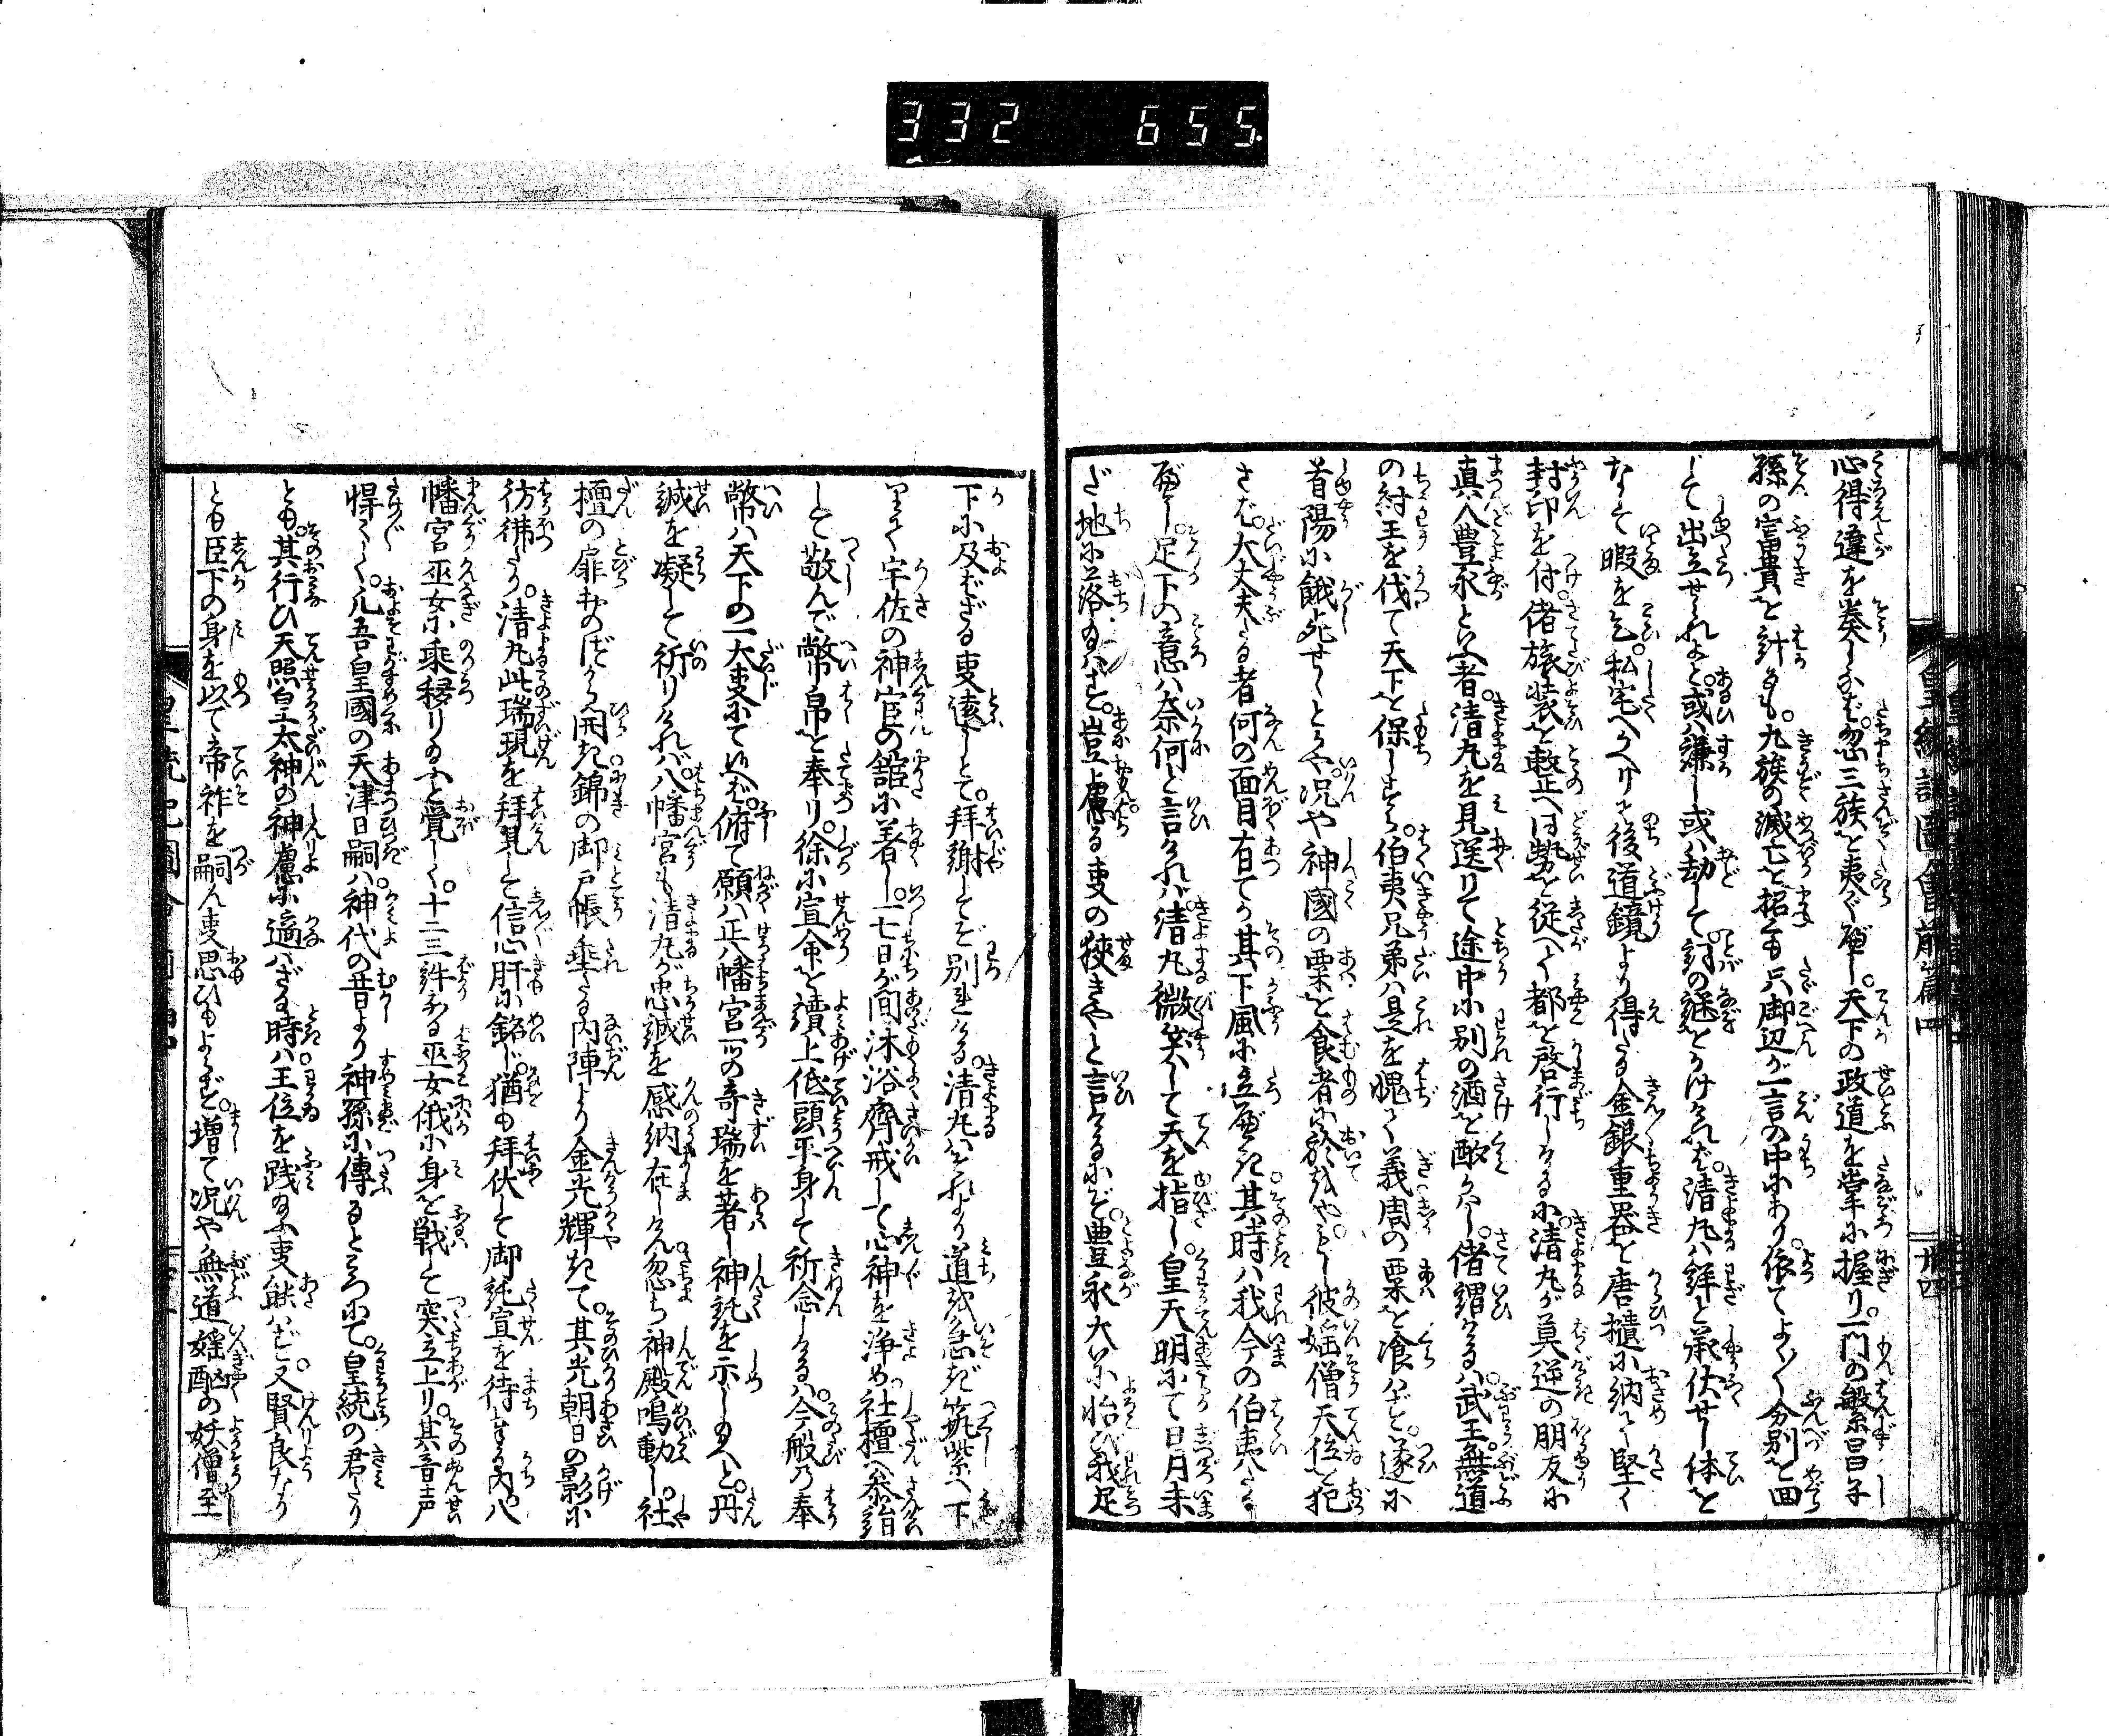 332 655
心得違を奏しなば。忽三族を夷ぐべし。天下の政道を掌に握り。一門の繁昌子
孫の富貴を計るも。九族の滅亡を招くも只御辺が一言の中にあり。依てよく〳〵分別を回
して出立せられよと。或ハ謙し或ハ劫して。詞の縺をかけゝれば。清丸ハ詳と承伏せし体を
なして暇を乞。私宅へかへりて後道鏡より得たる金銀重器を唐櫃に納て堅く
封印を付。偖旅装を整へ同勢を従へて都を啓行しけるに。清丸が莫逆の朋友に
真人豊永といふ者。清丸を見送りて途中に別の酒を酌かハし。偖謂けるハ。武王。無道
の紂王を伐て天下を保しすら。伯夷兄弟ハ是を愧て義周の粟を喰ハずと。遂に
首陽に餓死せしとかや。況や神國の粟を食者に於をや。もし彼婬僧天位を犯
さば。大丈夫たる者何の面目有てか其下風に立べき。其時ハ我今の伯夷ハたる
べし。足下の意ハ奈何と言ければ。清丸微笑して天を指し。皇天明にて日月未
だ地に落給ハず。豈慮る叓の狭きやと言けるにぞ。豊永大に怡び。我足
皇統記圖會前篇四
廿四
下に及ばざる叓遠しとて。拝謝してぞ別れける。清丸ハそれより道を急ぎ筑紫へ下
りて宇佐の神官の舘に着し。一七日が間沐浴齊戒して心神を浄め社檀へ参詣
して敬んで幣帛を奉り。徐に宣命を讀上低頭平身して祈念しけるハ。今般の奉
幣ハ天下の一大叓にて候へば。俯て願ハ正八幡宮一ツの奇瑞を著し神託を示し給へと。丹
誠を凝して祈りければ。八幡宮も清丸が忠誠を感納在しけん。忽ち神殿鳴動し。社
檀の扉おのづから開き。錦の御戸帳垂たる内陣より金光輝きて。其光朝日の影に
彷彿たり。清丸此瑞現を拝見して信心肝に銘じ。猶も拝伏して御託宣を待けるに。八
幡宮巫女に乗移り給ふと覚しく。十二三許なる巫女俄に身を戦して突立上り。其音声
悍く〳〵。凡吾皇國の天津日嗣ハ神代の昔より神孫に傳るところにて。皇統の君たり
とも。其行ひ天照皇太神の神慮に適ハざる時ハ王位を践給ふ叓能ハず。又賢良なり
とも臣下の身を以て帝祚を嗣ん叓思ひもよらず。増て況や無道婬酗の妖僧至
皇統記圖會